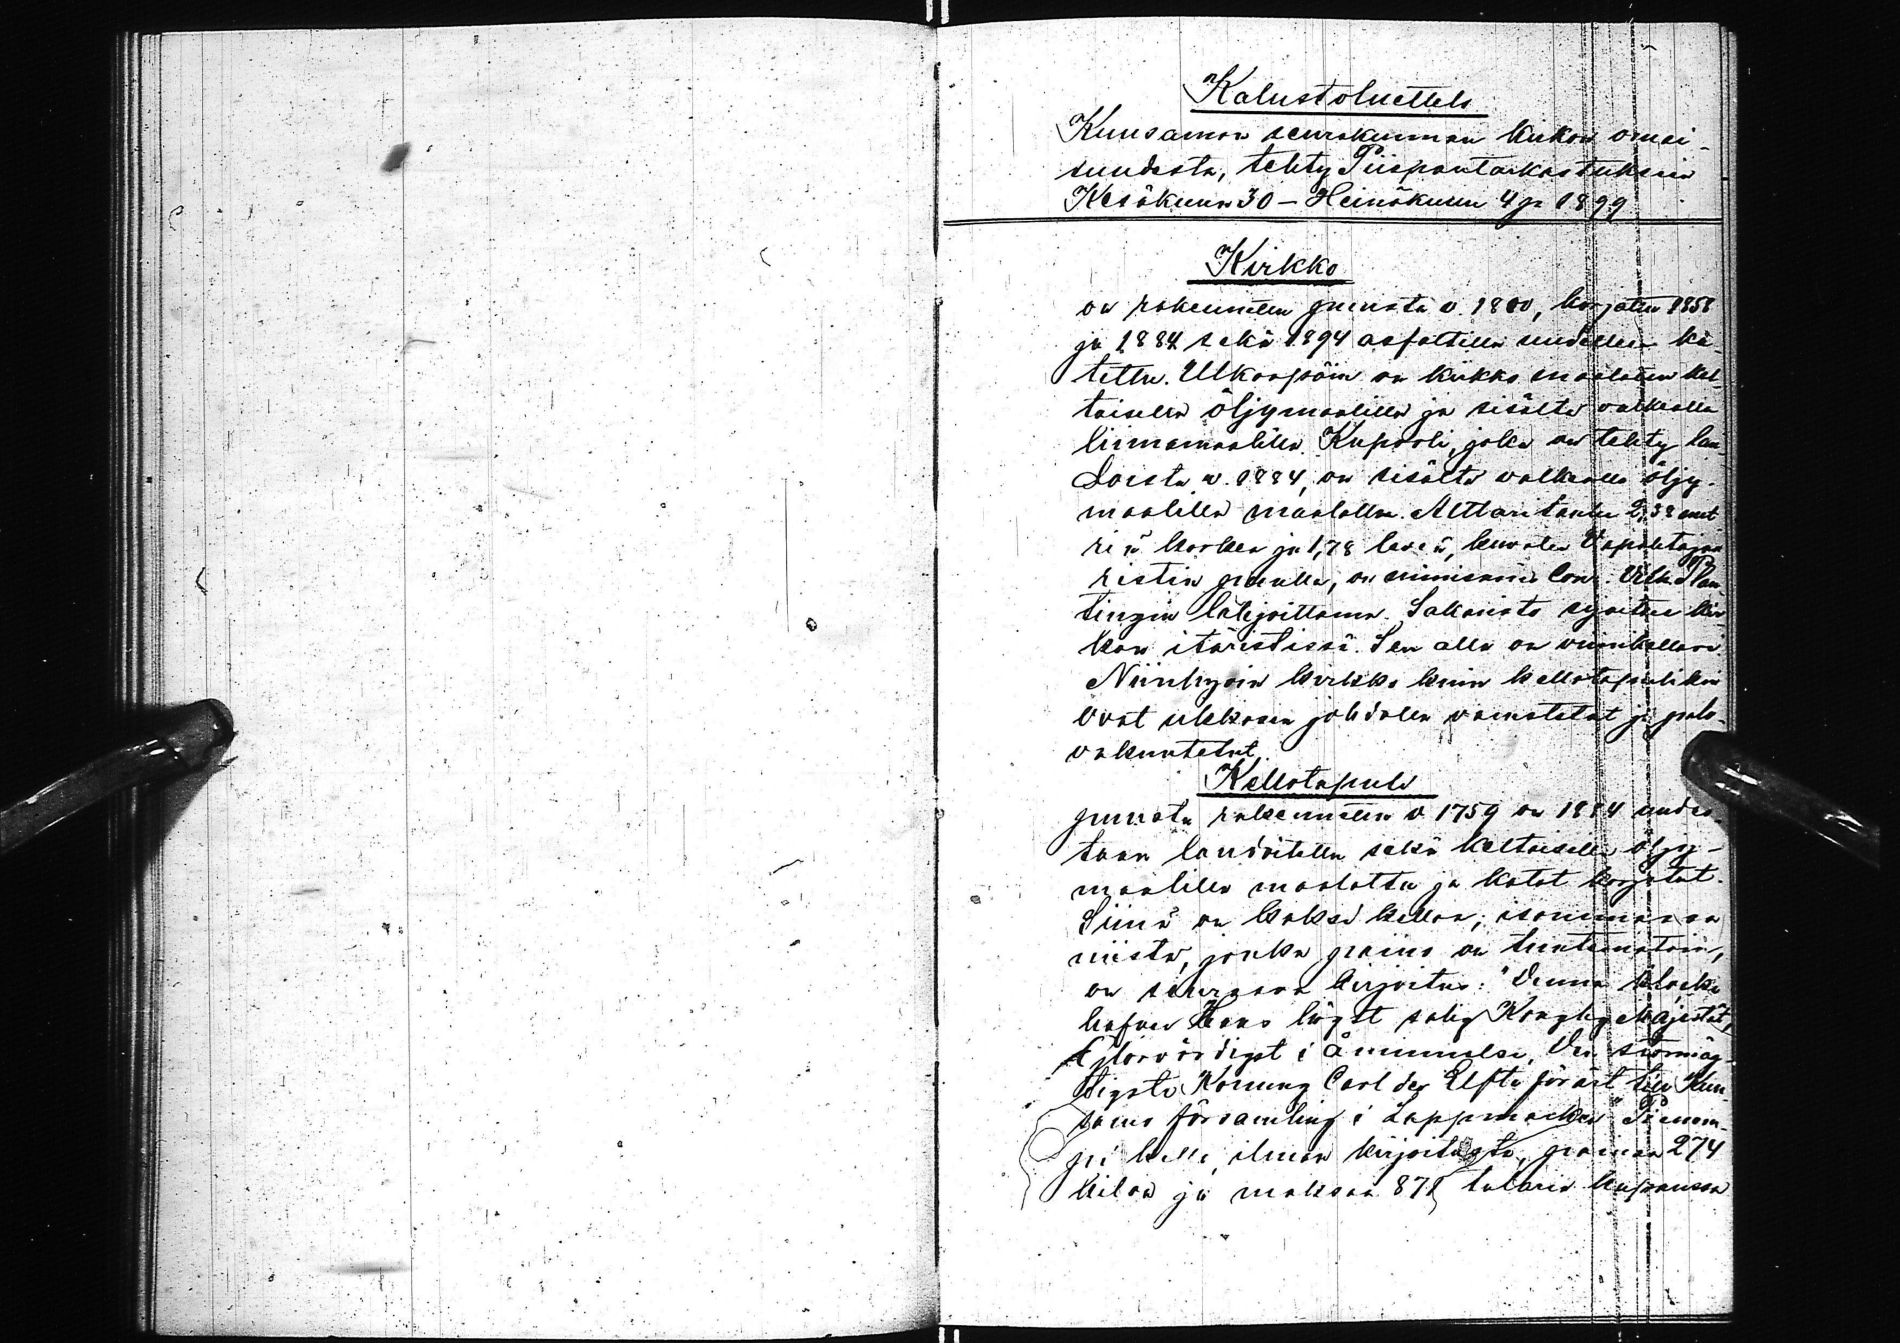 Kalustoluettelo
Kuusamon seurakunnan kirkon omai-
suudesta, tehty Piispantarkastuksessa
Kesäkuun 30 – Heinäkuun 4 p. 1899
Kirkko
on rakennettu puusta v. 1800, korjattu 1858
ja 1884 sekä 1894 asfaltilla uudelleen ka-
tettu. Ulkoapäin on kirkko maalattu kel-
taisella öljymaalilla ja sisältä valkealla
liimamaalilla. Kupooli, joka on tehty lau-
doista v. 1884, on sisältä valkealla öljy-
maalilla maalattu. Alttaritaulu 2,38 met
riä korkea ja 1,78 leveä, kuvaten Vapahtajan
ristin puulla, on Vilh. Plan
tingin lahjoittama. Sakaristo sijaitsee kir
kon itäristissä. Sen alla on viinikellari.
Niinhyvin kirkko kuin kellotapulikin
ovat ukkosen johdolla varustetut ja palo-
vakuutetut.
Kellotapuli
puusta rakennettu v 1759 on 1884 uudes-
taan laudoitettu sekä keltaisella öljy-
maalilla maalattu ja katot korjatut.
Siinä on kaksi kelloa; isommassa
niistä, jonka paino on tuntematoin,
on seuraava kirjoitus: "Denna klocka
hafver Hans högst salig Konglig Majestät,
Glorvördigst i åminnelse, Den stormäg-
tigste Konung Carl der Elfte förärt till Kuu-
samo församling i Lappmarken" Pienem-
pi kello, ilman kirjoitusta, painaa 274
kiloa ja maksaa 871 talaria kuparissa